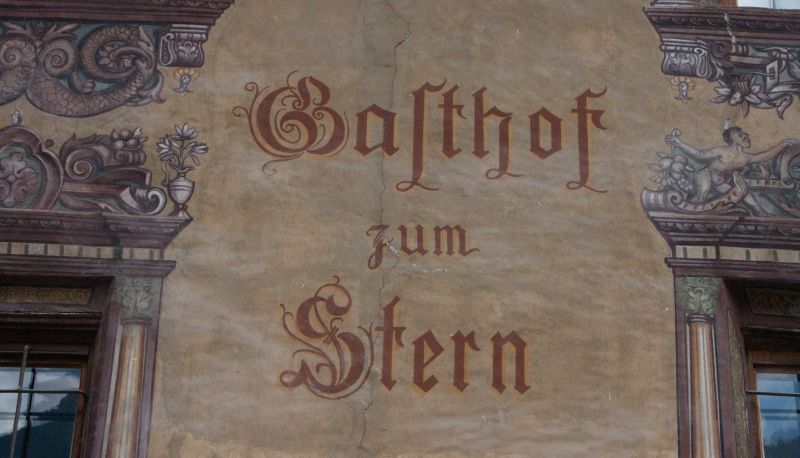 Gasthof
zum
Stern